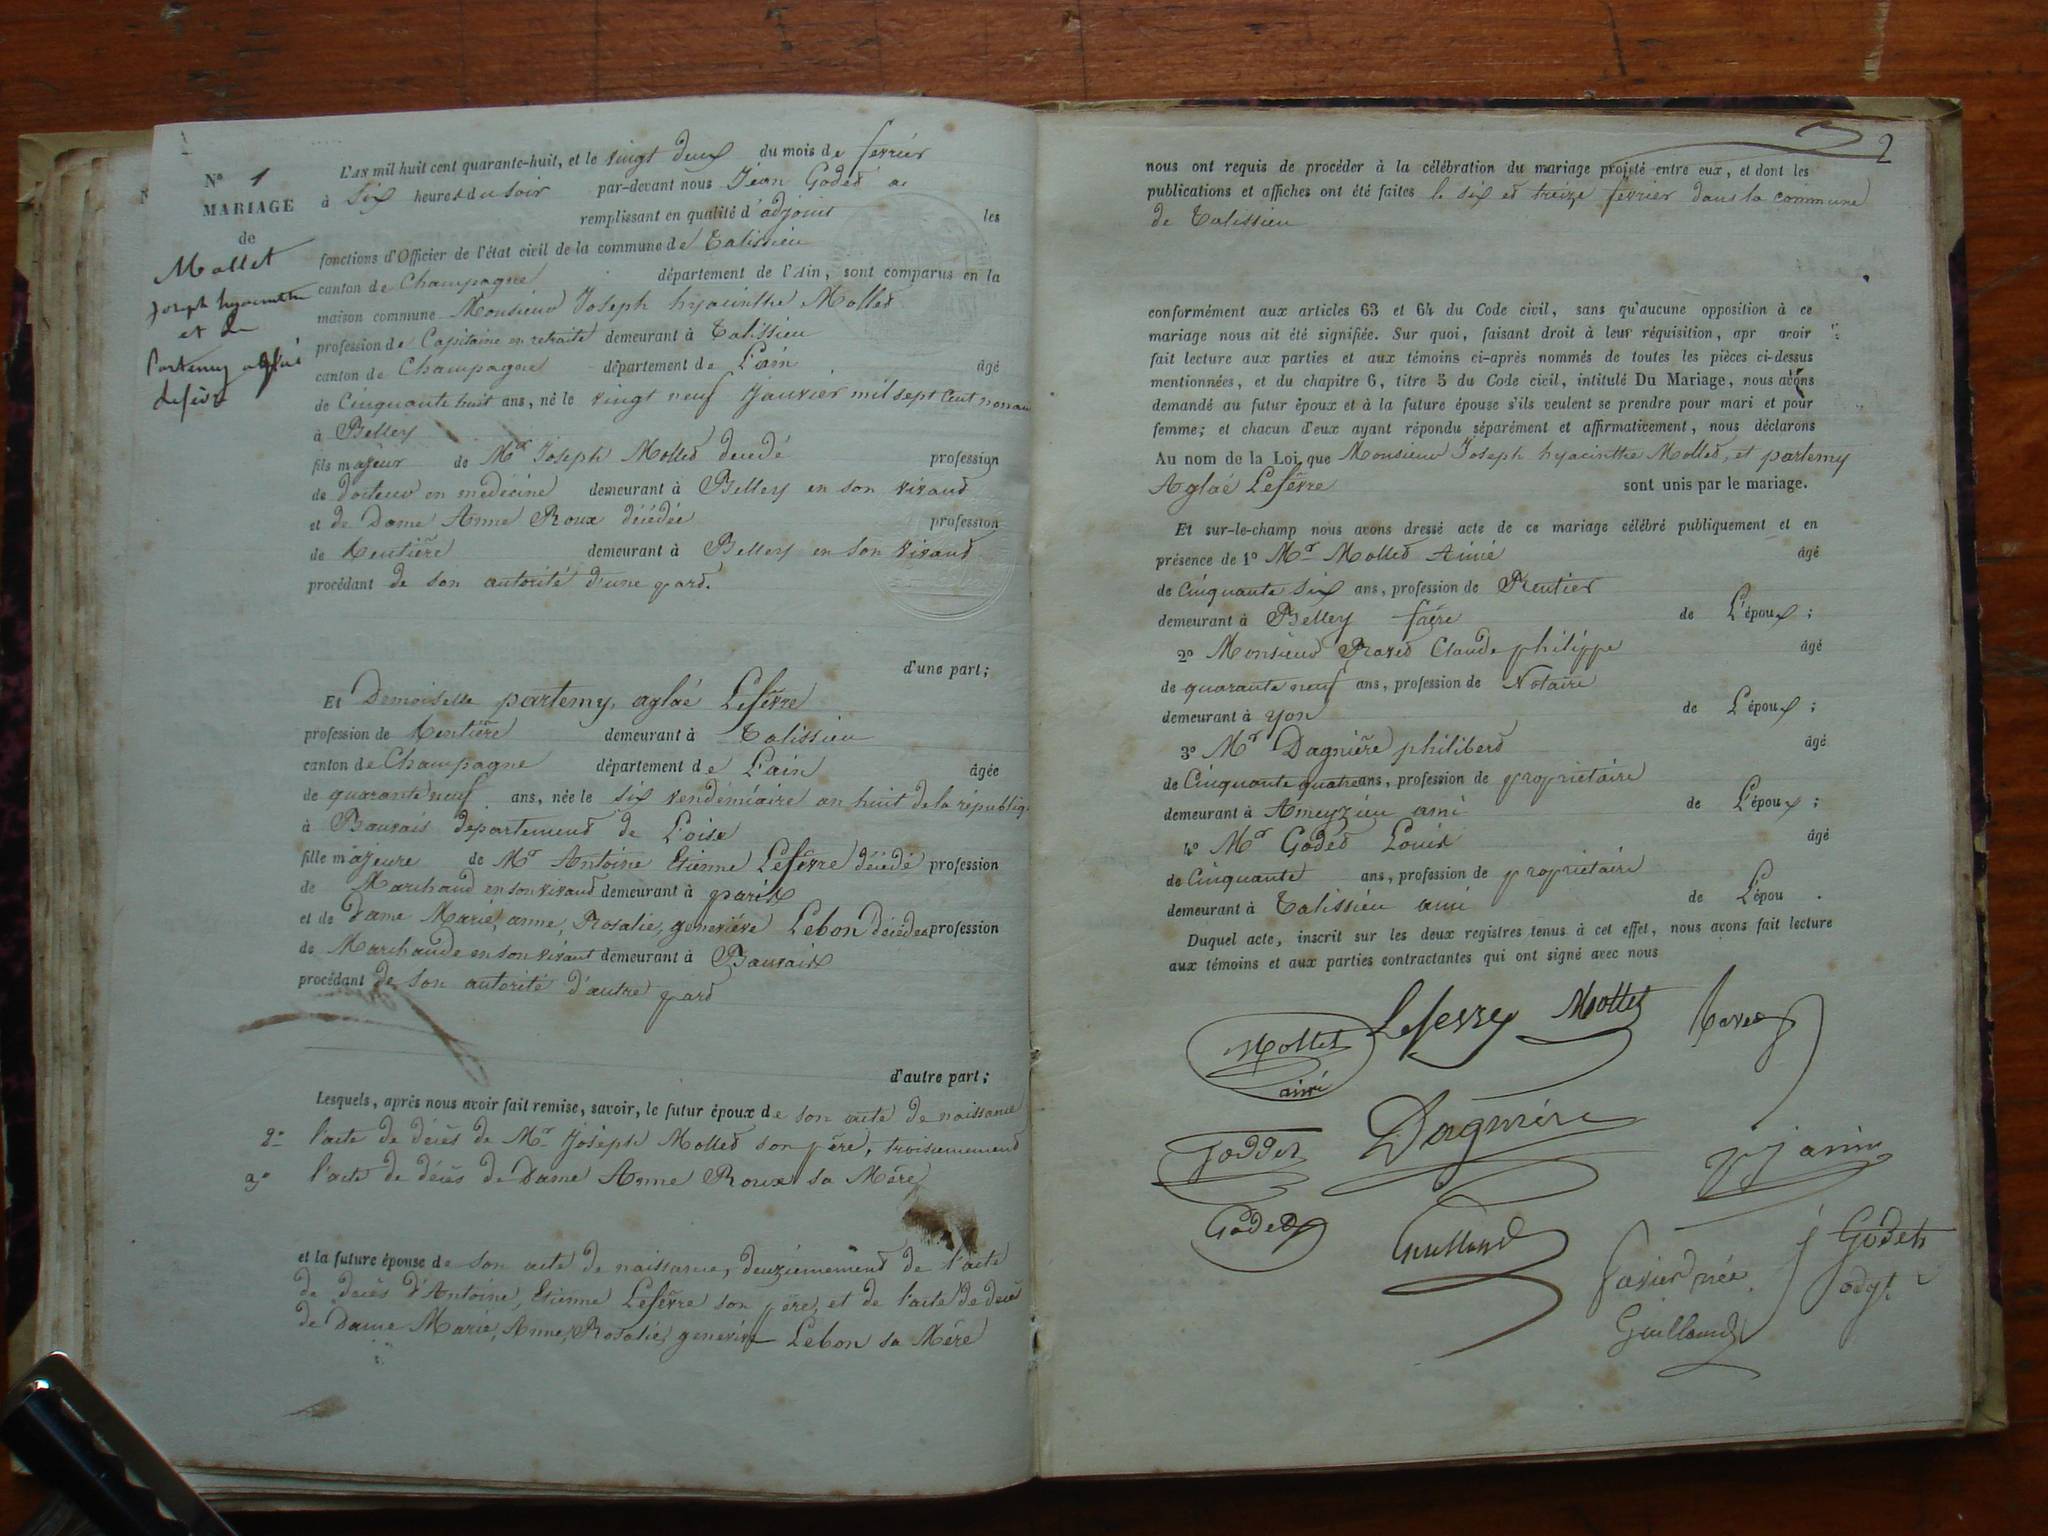 N° 1
MARIAGE
de
Mollet
Joseph hyacinthe
et de
Partemy aglaé
Lefèvre
L'AN mil huit cent quarante-huit, et le vingt deux du mois de fevrier
à six heures du soir par-devant nous Jean Goded
remplissant en qualité d'adjoint les
fonctions d'Officier de l'état civil de la commune de Talissieu
canton de Champagne département de l'Ain, sont comparus en la
maison commune Monsieur Joseph hyacinthe Molled
profession de Capitaine en retraite demeurant à Talissieu
canton de Champagne département de L'ain âgé
de Cinquante huit ans, né le vingt neuf Janvier mil sept cent
à Belley
fils majeur de Mr Joseph Molled decedé profession
de docteur en medecine demeurant à Belley en son vivand
et de Dame Anne Roux décédée profession
de Rentière demeurant à Belley en son vivand
procédant de son autorité d'une pard.
d'une part;
Et Demoiselle partemy, aglaé Lefèvre
profession de Rentière demeurant à Talissieu
canton de Champagne département de L'ain âgée
de quarante neuf ans, née le six vendémiaire an huit de la républiq
à Bauvais departemend de L'oise
fille majeure de Mr Antoine Etienne Lefèvre décédé profession
de Marchand en son vivand demeurant à paris
et de Dame Marie, anne, Rosalie, geneviève Lebon décédée profession
de Marchande en son vivant demeurant à Bauvais
procédant de son autorité d'autre pard
d'autre part;
Lesquels, après nous avoir fait remise, savoir, le futur époux de son acte de naissance
2° l'acte de décès de Mr Joseph Molled son père, troisiemement
3° l'acte de décès de Dame Anne Roux sa Mère
et la future épouse de son acte de naissance, deuxiemement de l'acte
de decès d'Antoine, Etienne Lefèvre son père, et de l'acte de decès
de Dame Marie, Anne, Rosalie, Lebon sa Mère
2
nous ont requis de procéder à la célébration du mariage projeté entre eux, et dont les
publications et affiches ont été faites le six et treize fevrier dans la commune
de Talissieu
conformément aux articles 63 et 64 du Code civil, sans qu'aucune opposition à ce
mariage nous ait été signifiée. Sur quoi, faisant droit à leur réquisition, apr avoir
fait lecture aux parties et aux témoins ci-après nommés de toutes les pièces ci-dessus
mentionnées, et du chapitre 6, titre 5 du Code civil, intitulé Du Mariage, nous avons
demandé au futur époux et à la future épouse s'ils veulent se prendre pour mari et pour
femme; et chacun d'eux ayant répondu séparément et affirmativement, nous déclarons
Au nom de la Loi, que Monsieur Joseph hyacinthe Molled, et partemy
Aglaé Lefèvre sont unis par le mariage.
Et sur-le-champ nous avons dressé acte de ce mariage célébré publiquement et en
présence de 1° Mr Molled Aimé âgé
de Cinquante six ans, profession de Rentier
demeurant à Belley frère de L'époux;
2° Monsieur Raved Claude philippe âgé
de quarante neuf ans, profession de Notaire
demeurant à yon de L'époux;
3° Mr Dagnière philiberd âgé
de Cinquante quatre ans, profession de propriétaire
demeurant à Ameyzieu ami de L'époux;
4° Mr Goded Louis âgé
de Cinquante ans, profession de propriétaire
demeurant à Talissieu ami de L'épou .
Duquel acte, inscrit sur les deux registres tenus à cet effet, nous avons fait lecture
aux témoins et aux parties contractantes qui ont signé avec nous
Mollet Lefevre Mollet Raved
aimé
Dagnière
Janin
Goded
Guilland
Favier née
Guilland
j Godet
adjt